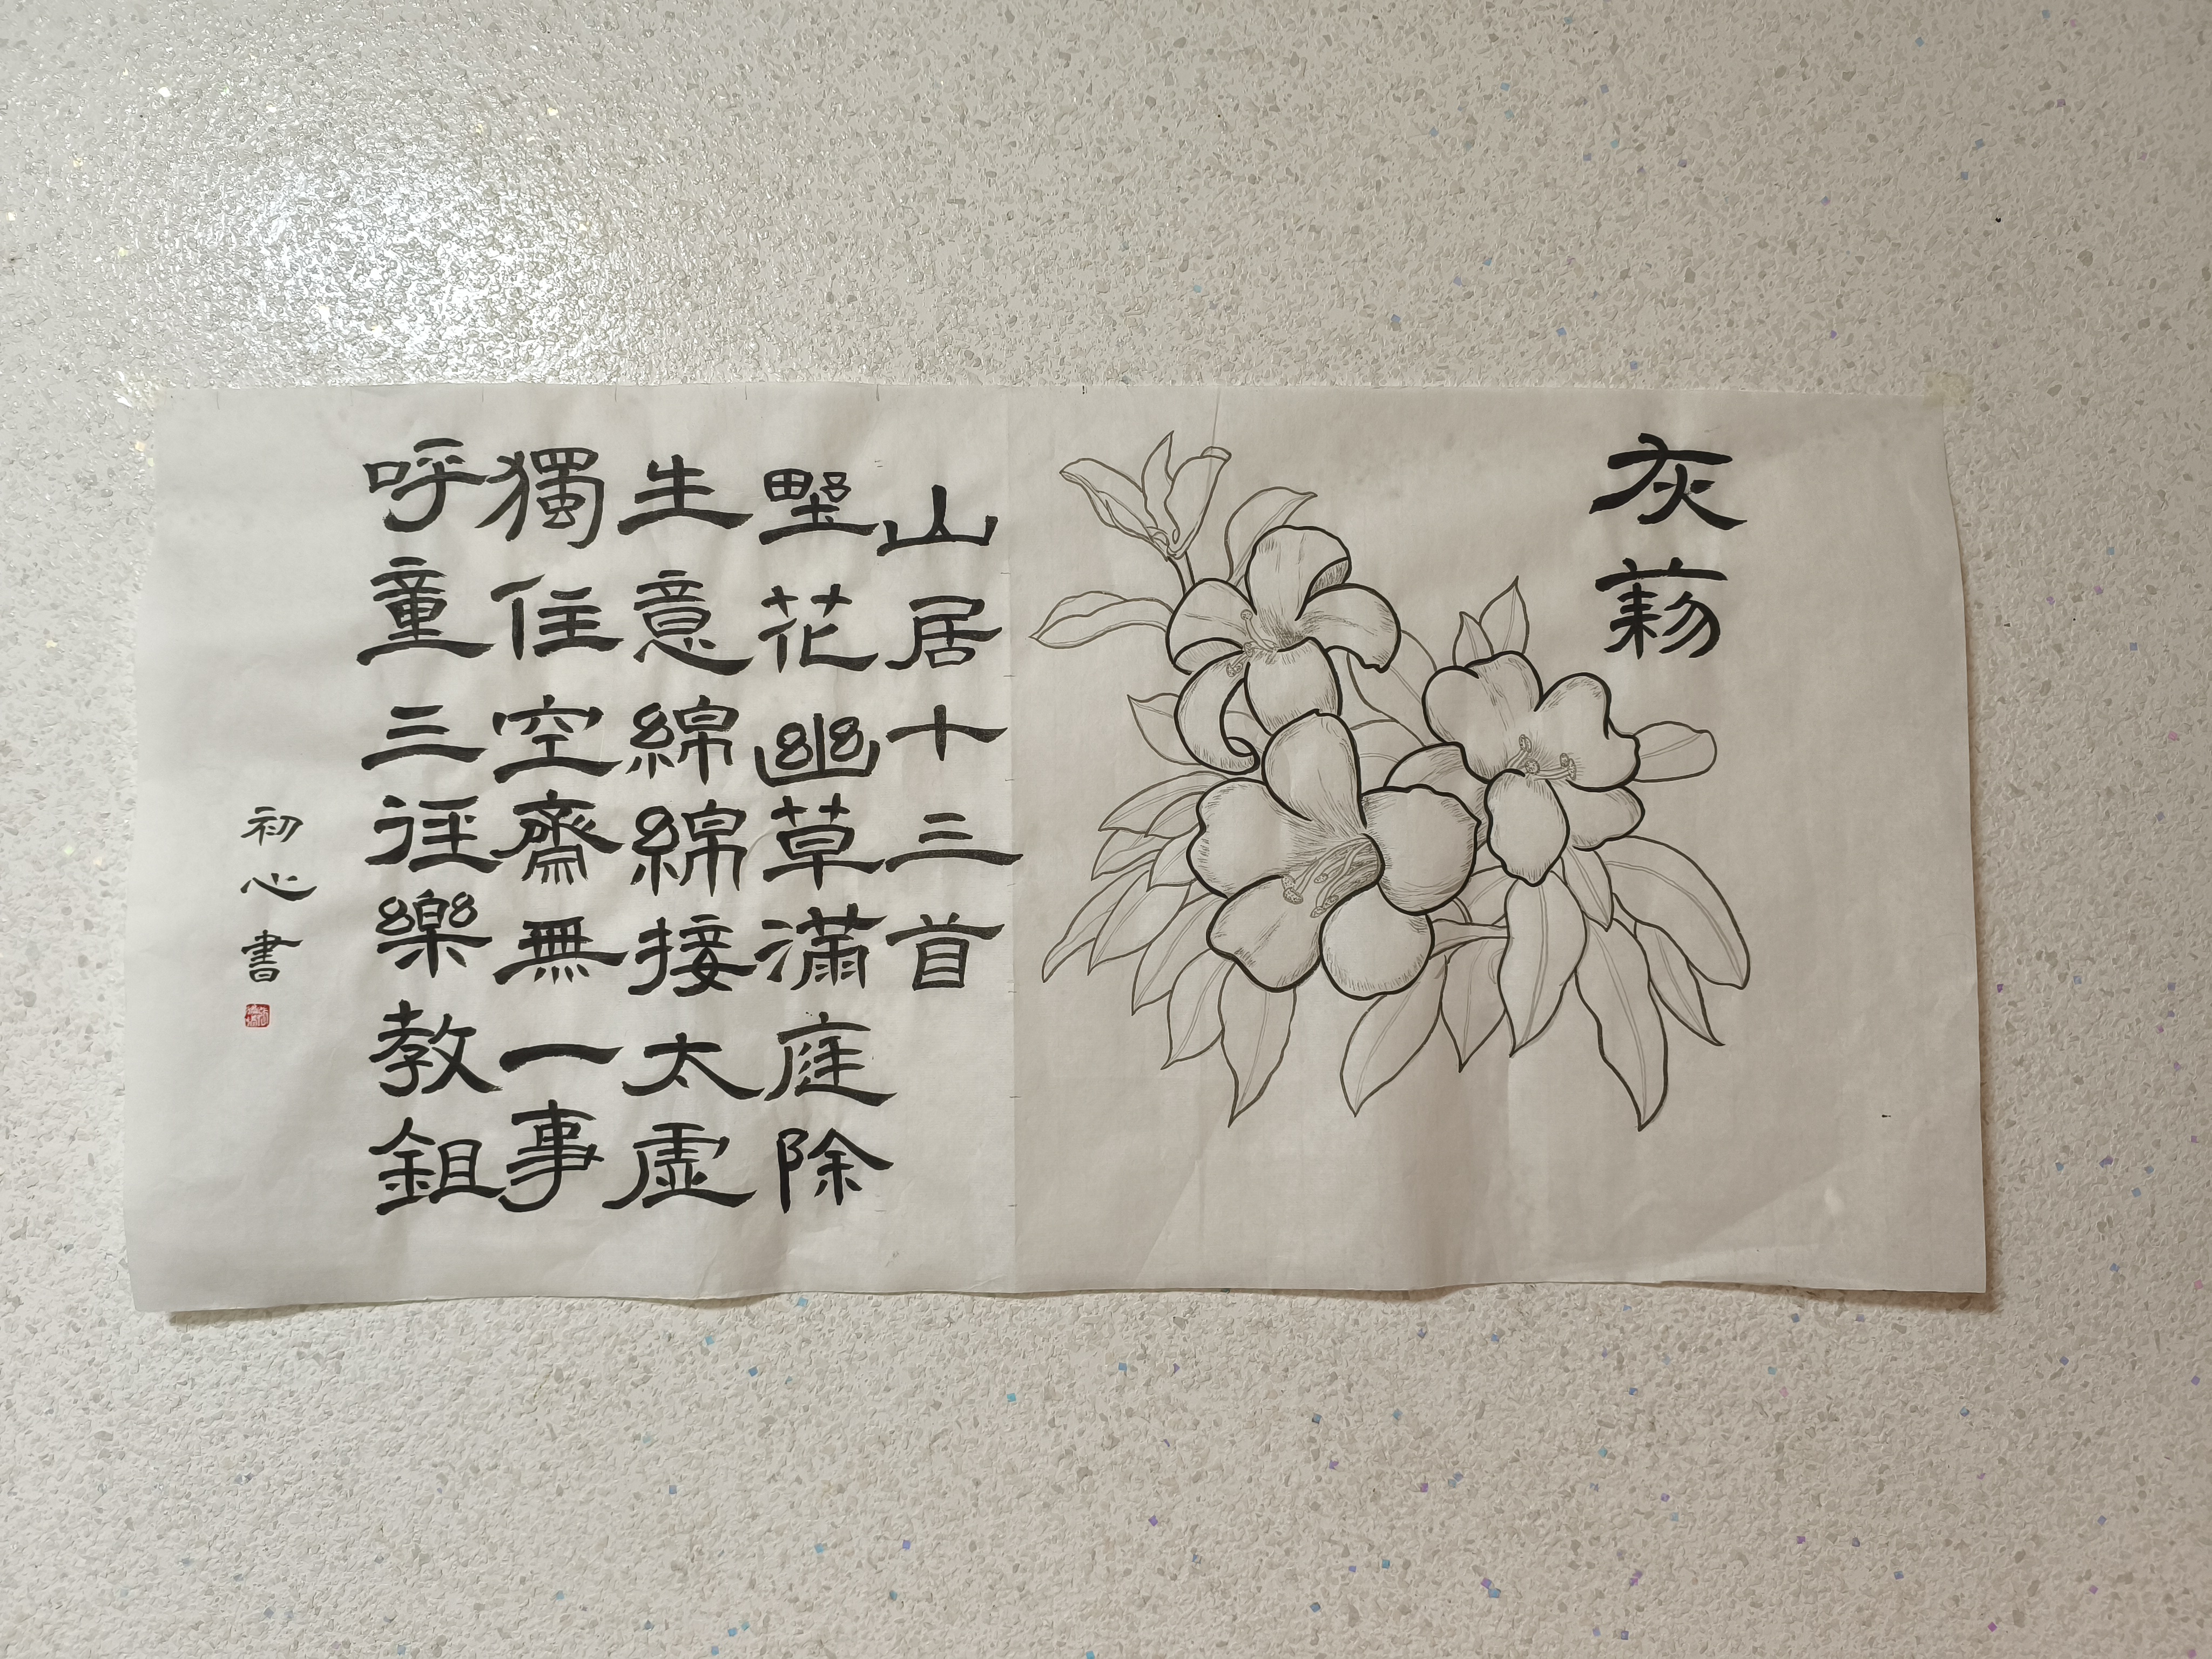 灰莉
山居十三首
野花幽草滿庭除
生意綿綿接太虛
獨住空齋無一事
呼童三徑樂教鉏
初心書